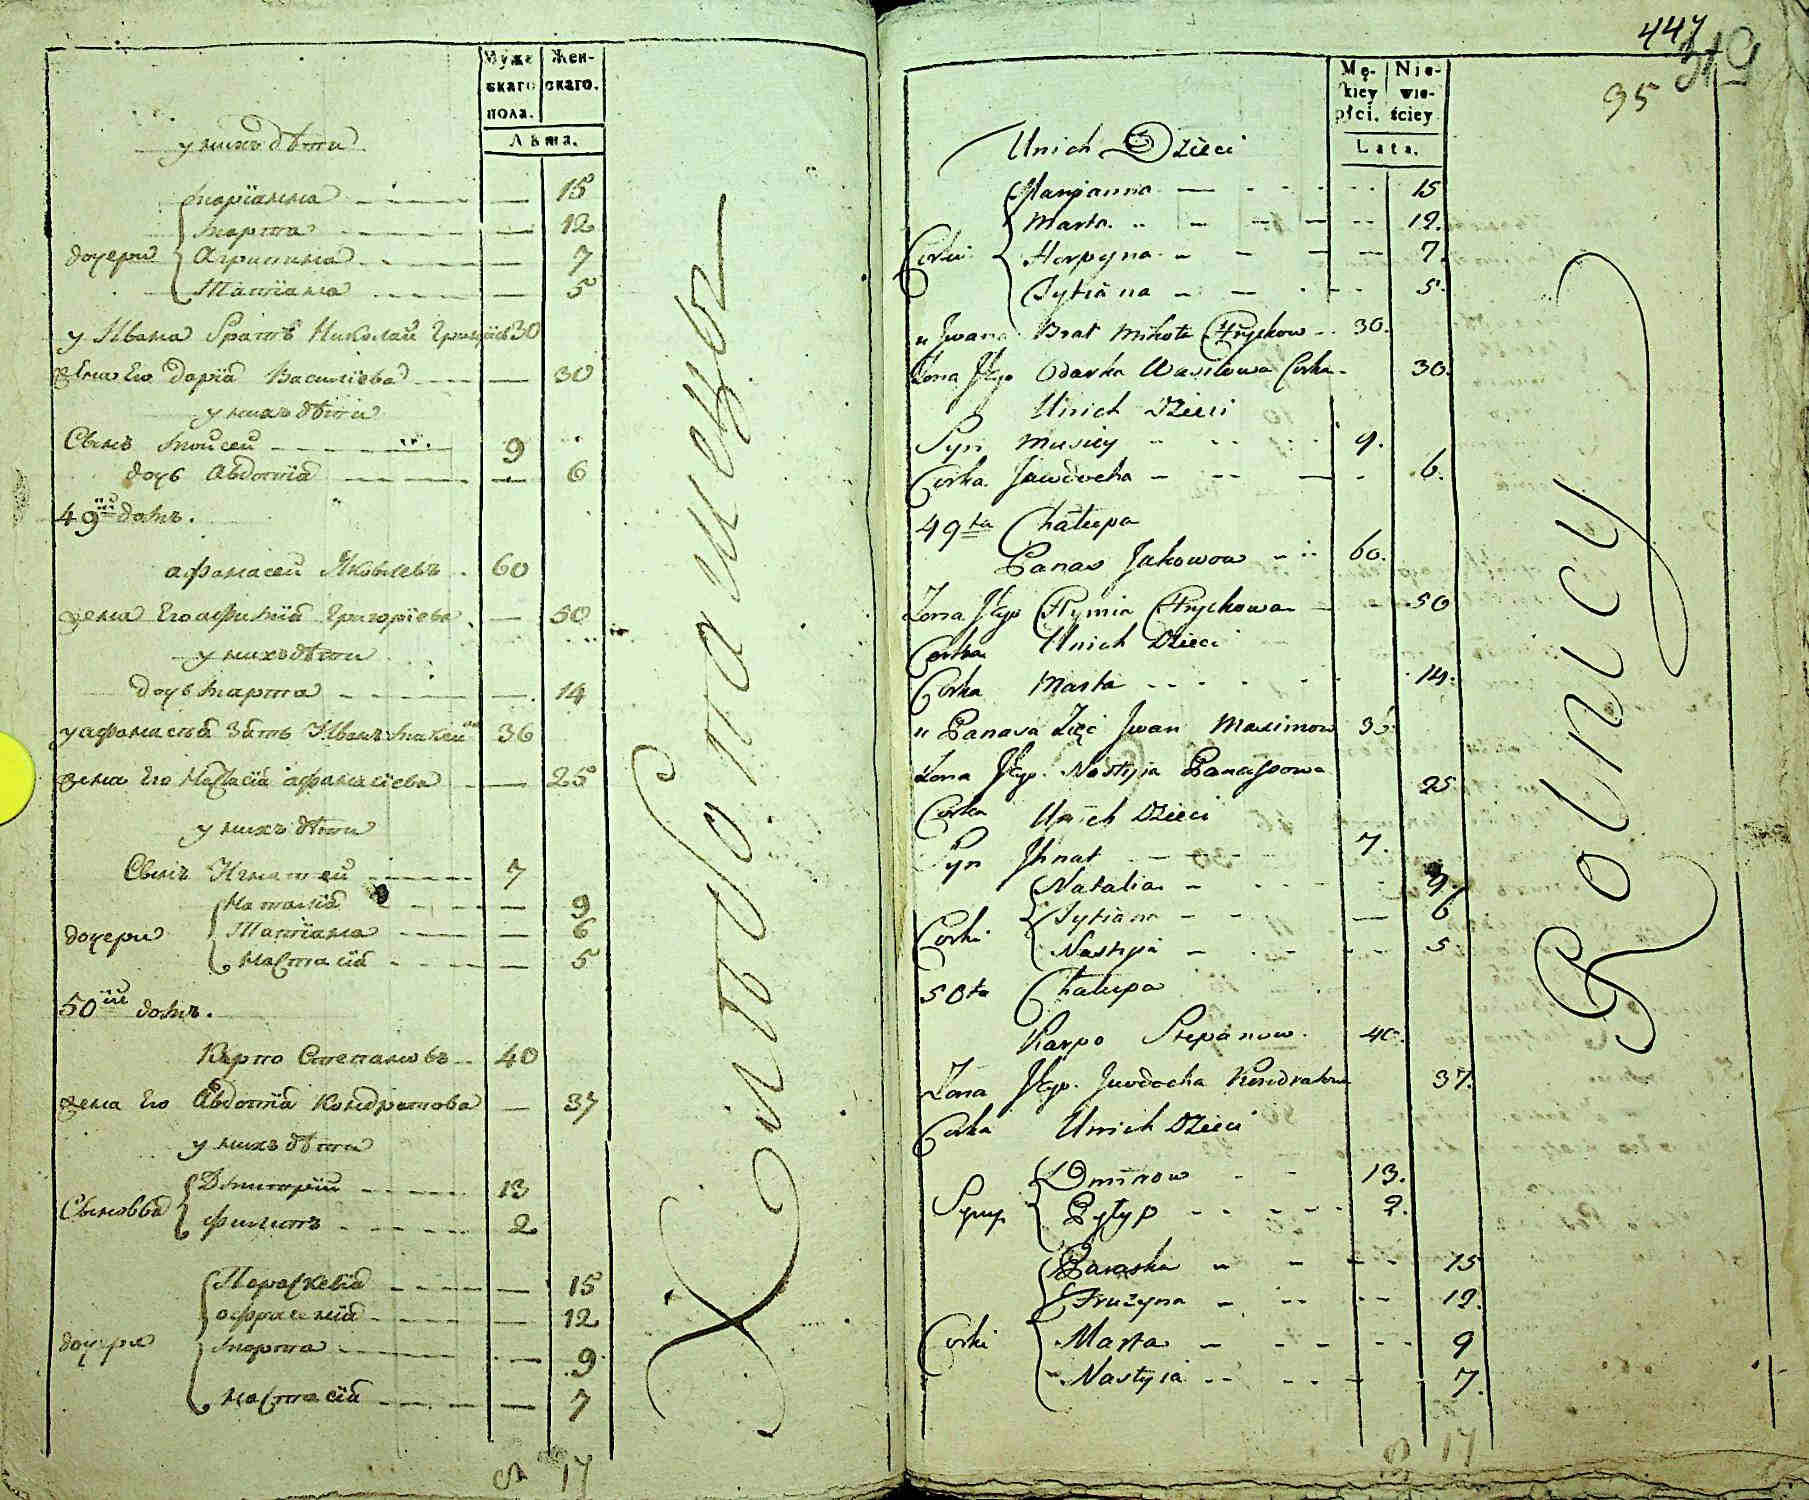 Муже
скаго
пола.
Жен-
скаго.
Лѣта.
у нихъ дѣти
дочери
Маріанна 15
Марта 12
Агрипина 7
Татіана 5
у Ивана братъ Николай 30
жена Его Дарія Василіева 30
у нихъ дѣти
Сынъ Моисей 9
дочь Авдотіа 6
49ій домъ.
Афанасей Яковлевъ 60
жена Его Афимія Григоріева 50
у нихъ дѣти
дочь Марта 14
у Афанасія зять Иванъ 36
жена Его Настасія Афанасіева 25
у нихъ дѣти
Сынъ Игнатей 7
дочери
Наталія 9
Татіана 6
Настасія 5
50ій домъ.
Карпо Степановъ 40
жена Его Авдотіа Кондратова 37
у нихъ дѣти
Сыновья
Дмитрій 13
Филипъ 2
дочери
Параскевія 15
Офросинія 12
Марта 9
Настасія 7
8 17
Хлѣбопашецъ
447
95
Mę-
skiey
płci.
Nie-
wie-
ściey
Lata.
Unich Dzieci
Corki
Marjanna 15
Marta 12.
Horpyna 7.
Tytiana 5.
u Jwana Brat Mikoła Hryckow 30.
Zona Jego Odarka Wasilowa Corka 30.
Unich Dzieci
Syn Musiey 9.
Corka Jawdocha 6.
49ta Chałupa
Panas Jakowow 60.
Zona Jego Chymia Hryckowa 50
Corka Unich Dzieci
Corka Marta 14.
u Panasa Zięć Jwan Maximow 36.
Zona Jego Nastyia Panassowa 25
Corka Unich Dzieci
Syn Jhnat 7.
Corki
Natalia 9.
Tytiana 6
Nastyia 5
50ta Chałupa
Karpo Stepanow 40.
Zona Jego Jwdocha Kondratowa 37.
Corka Unich Dzieci
Syny
Dmitrow 13.
Pyłyp 2.
Corki
Paraska 15
Fruzyna 12.
Marta 9
Nastyia 7.
8 17
Rolnicy